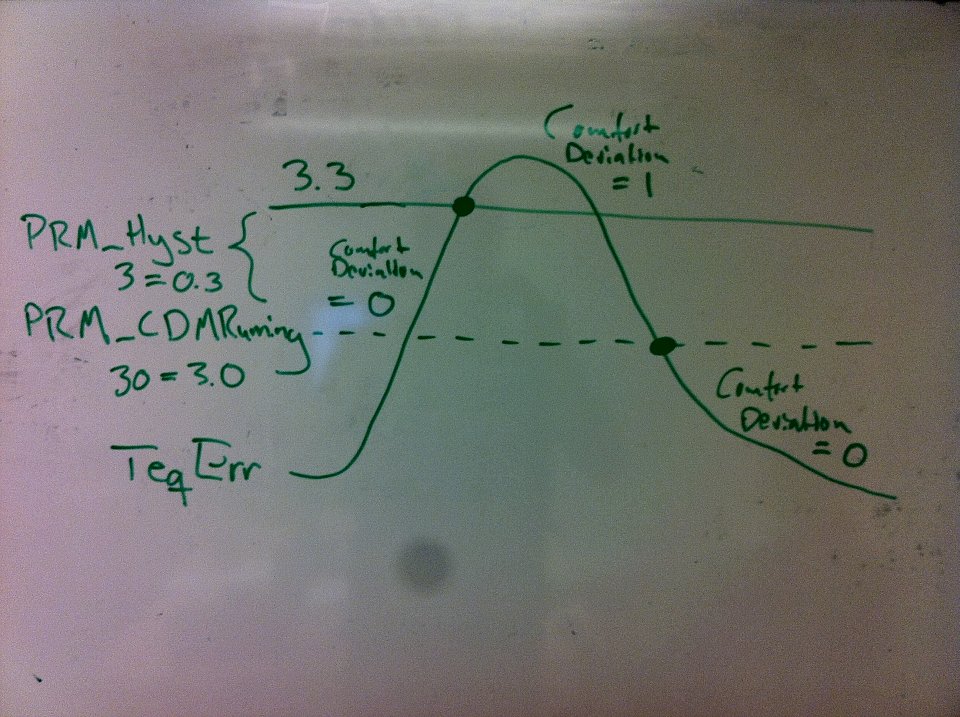 3.3
Comfort
Deviation
= 1
PRM_Hyst
3 = 0.3
Comfort
Deviation
= 0
PRM_CDMRuning
30 = 3.0
Comfort
Deviation
= 0
TeqErr